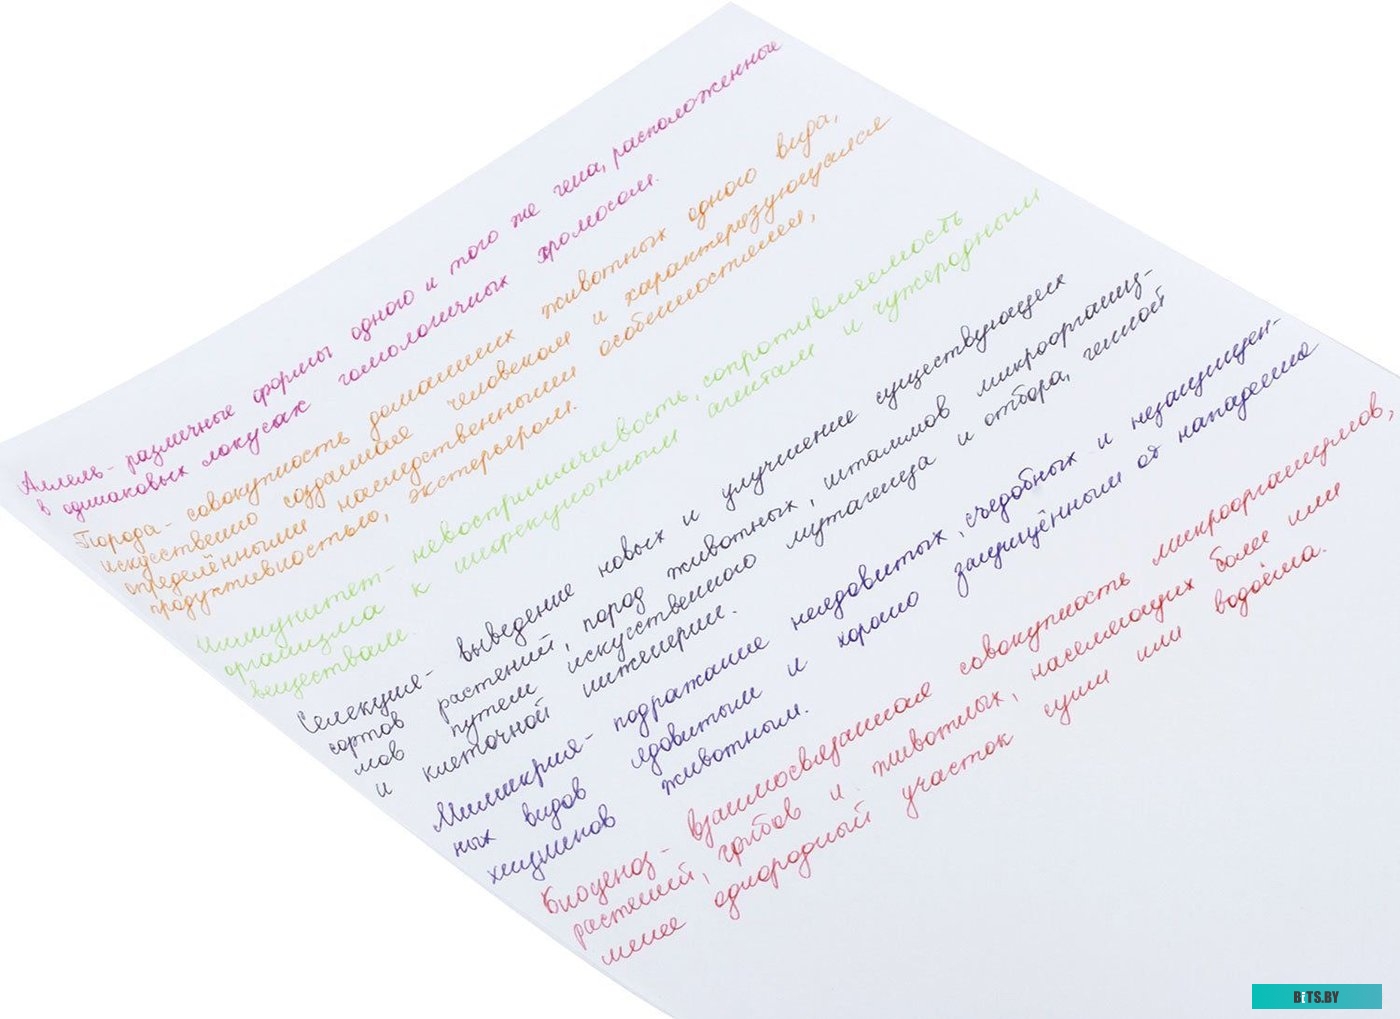 Аллель- различные формы одного и того же гена, расположенные
в одинаковых локусах гомологичных хромосом.
Порода- совокупность домашних животных одного вида,
искусственно созданная человеком и характеризующаяся
определёнными наследственными особенностями,
продуктивностью, экстерьером.
Иммунитет- невосприимчивость, сопротивляемость
организма к инфекционным агентам и чужеродным
веществам.
Селекция- выведение новых и улучшение существующих
сортов растений, пород животных, штаммов микроорганиз-
мов путём искусственного мутагенеза и отбора, генной
и клеточной инженерии.
Мимикрия- подражание неядовитых, съедобных и незащищен-
ных видов ядовитым и хорошо защищённым от нападения
хищников животным.
Биоценоз- взаимосвязанная совокупность микроорганизмов,
растений, грибов и животных, населяющих более или
менее однородный участок суши или водоёма.
BiTS.BY